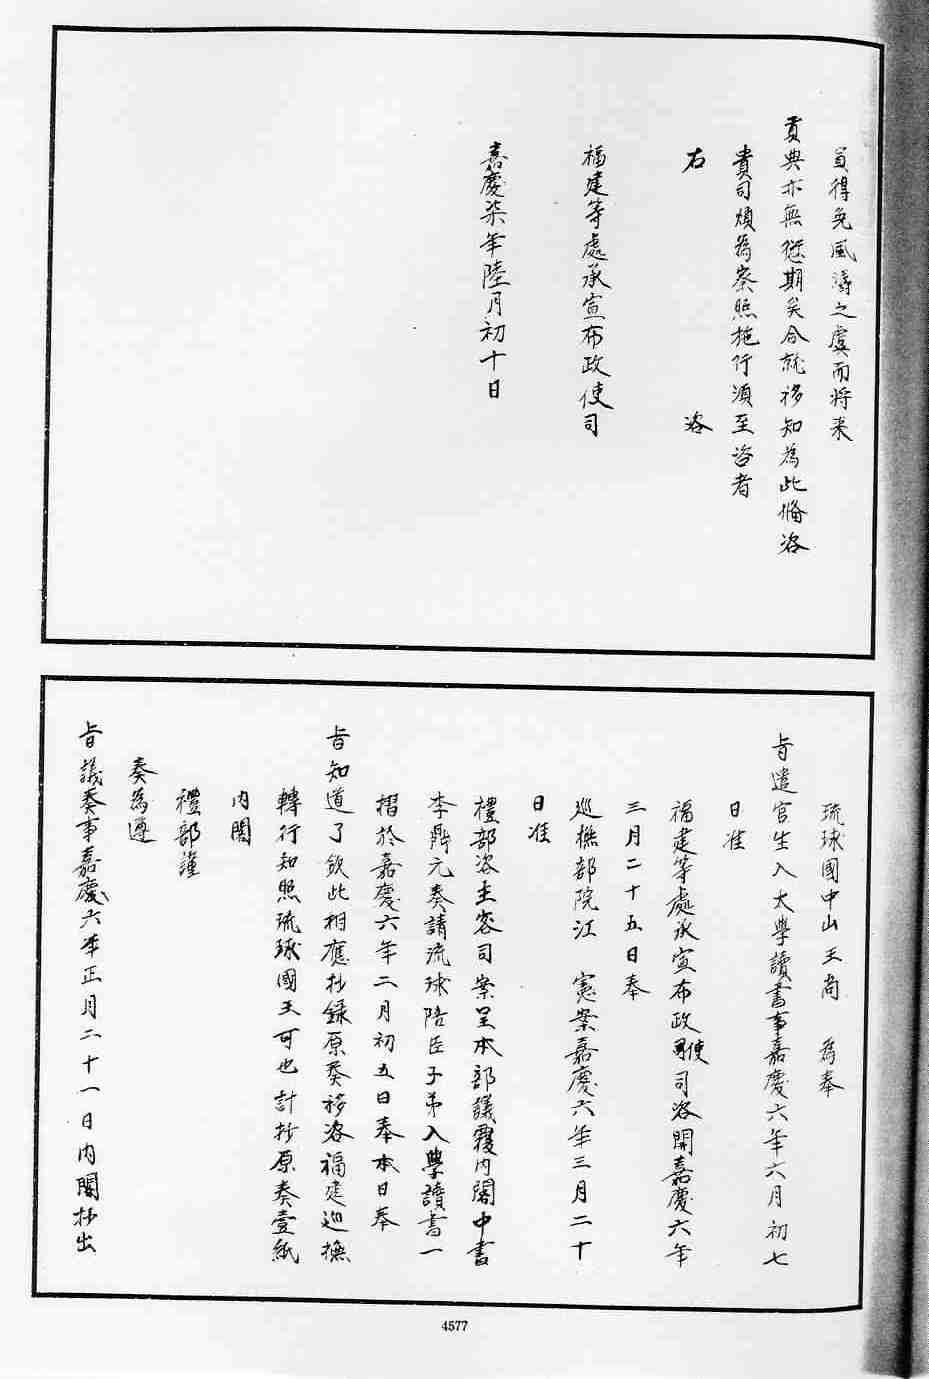 貟得免風濤之虞而將来
貢典亦無愆期矣合就移知為此俻咨
貴司煩為察照施行須至咨者
右　咨
福建等處承宣布政使司
嘉慶柒年陸月初十日
琉球國中山王尚　為奉
旨遣官生入太學讀書事嘉慶六年六月初七
日准
福建等處承宣布政使司咨開嘉慶六年
三月二十五日奉
巡撫部院汪　憲案嘉慶六年三月二十
日准
禮部咨主客司案呈本部議覆内閣中書
李鼎元奏請流球陪臣子弟入學讀書一
摺於嘉慶六年二月初五日奉本日奉
旨知道了欽此相應抄録原奏移咨福建巡撫
轉行知照琉球國王可也計抄原奏壹紙
内閣
禮部謹
奏為遵
旨議奏事嘉慶六年正月二十一日内閣抄出
4577